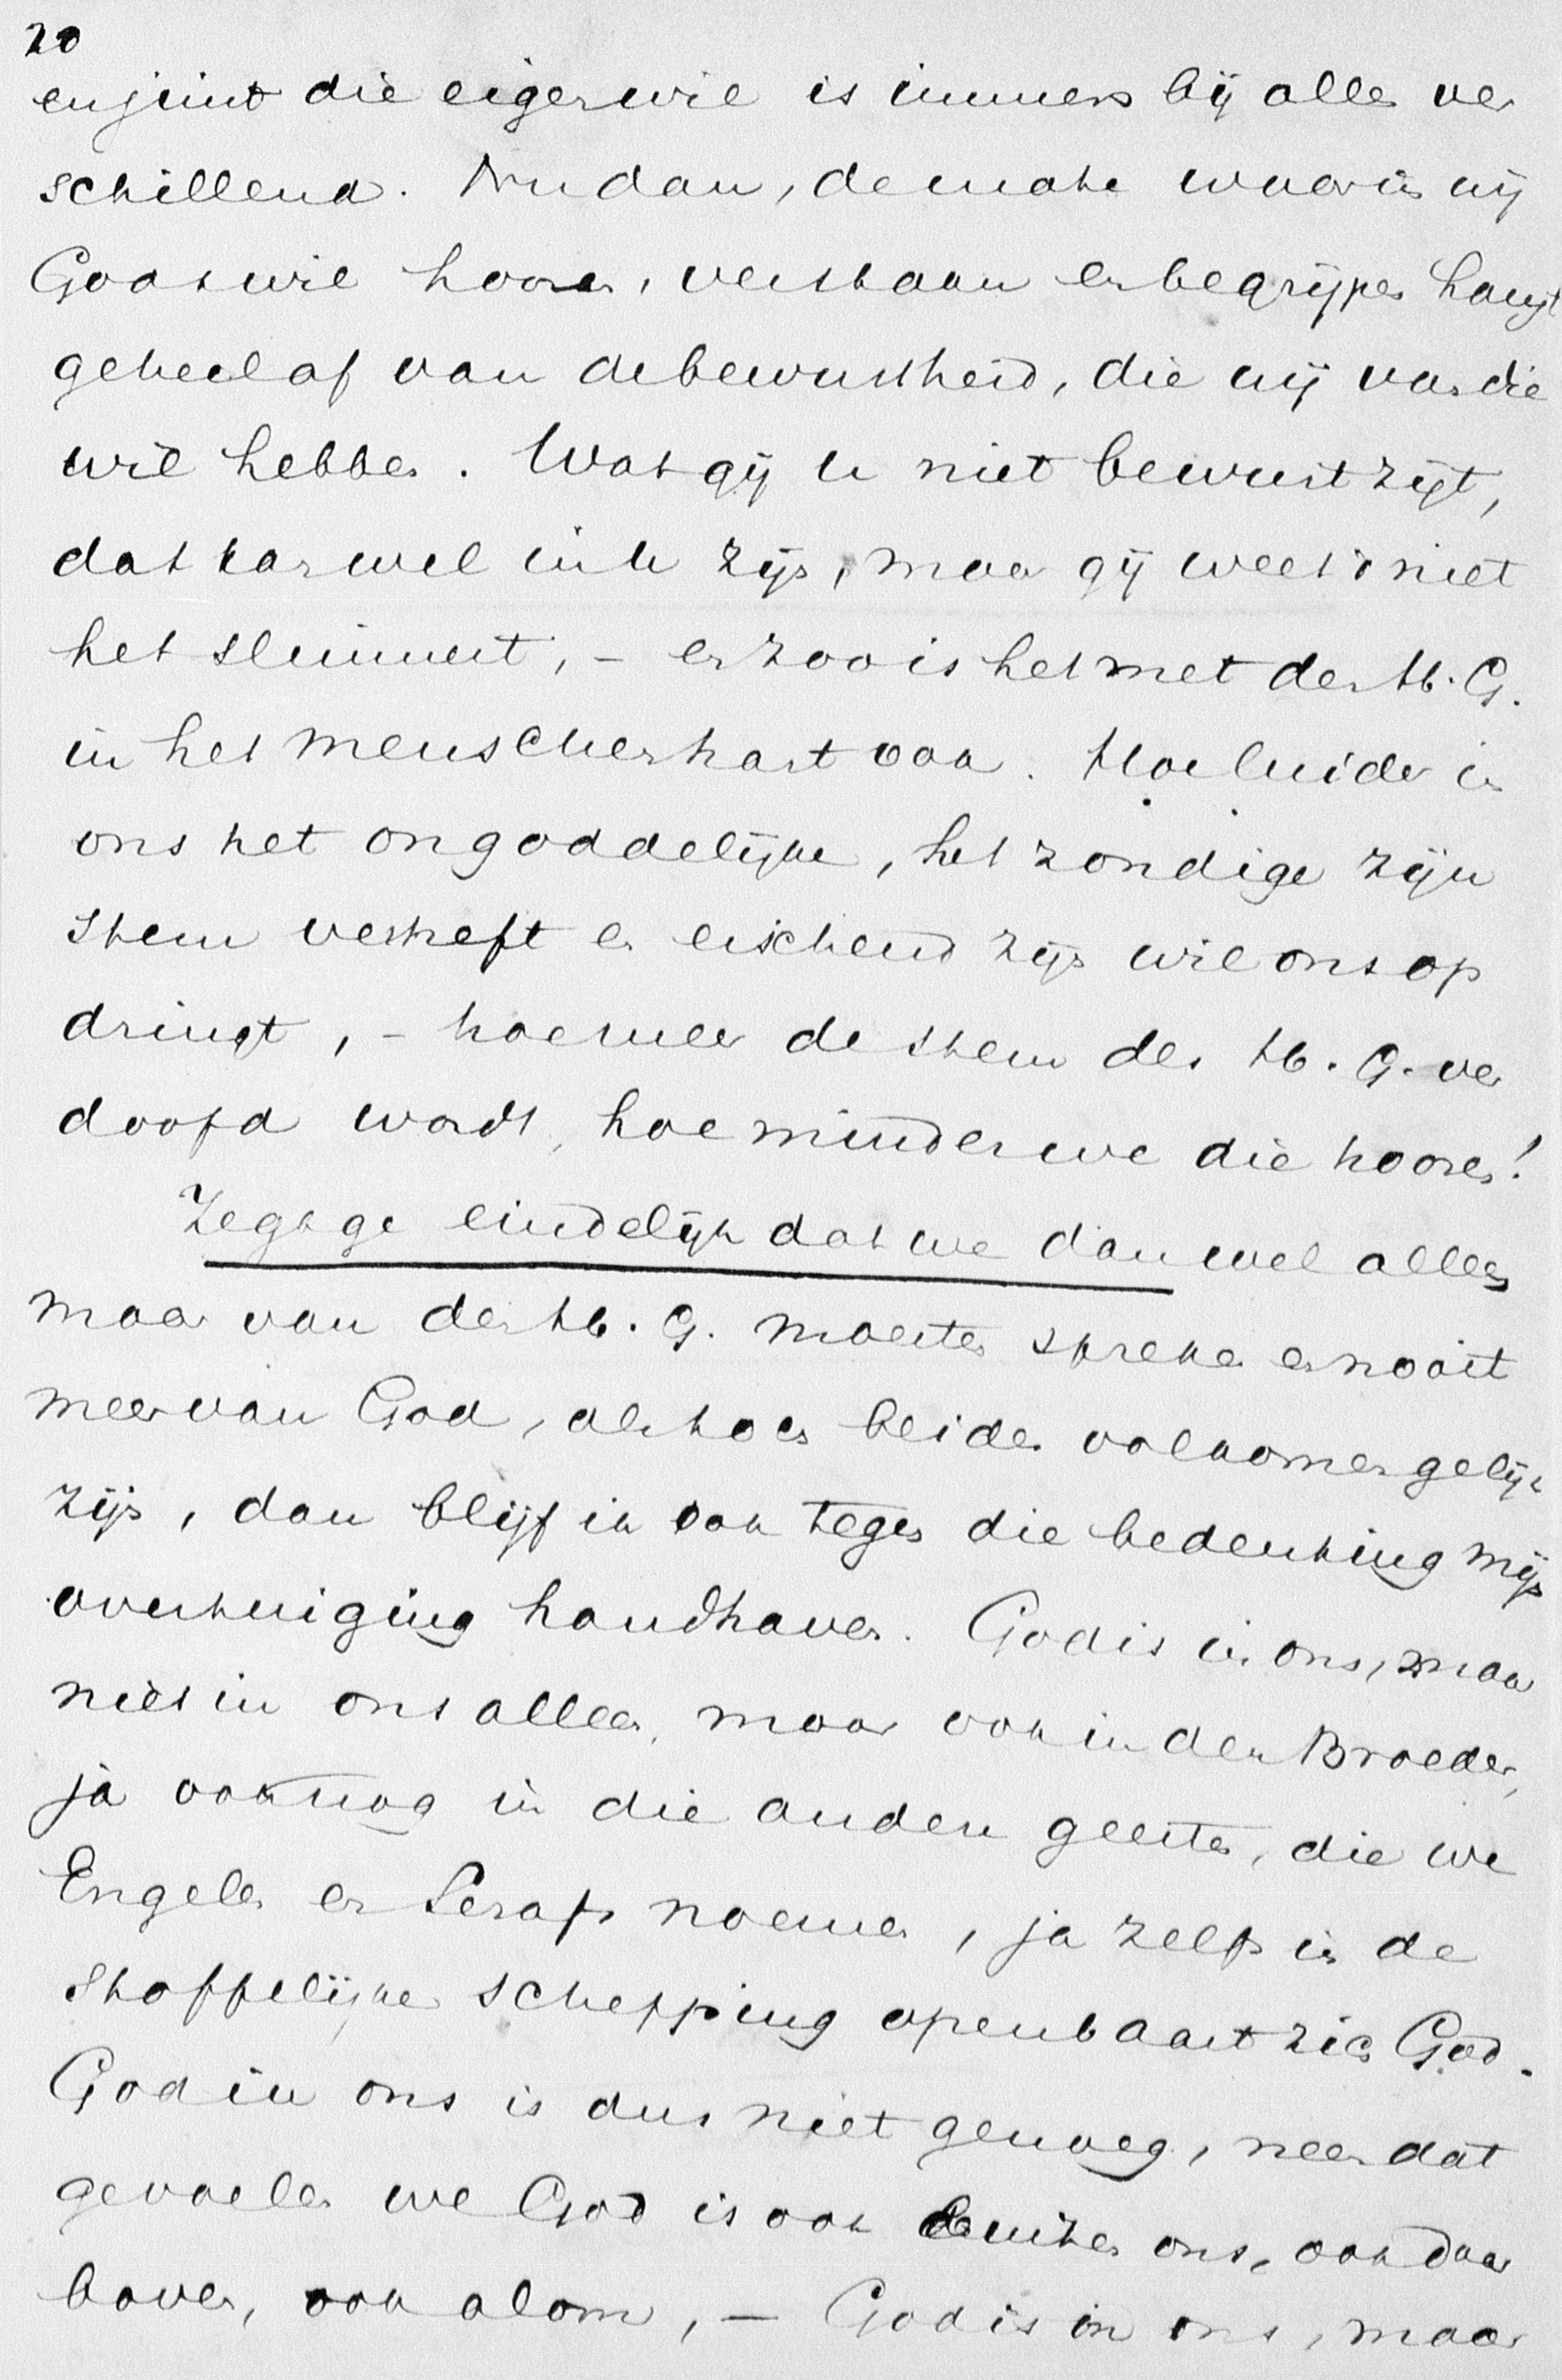 20
en juist die eigen wil is immers bij allen ver
schillend. Nu dan, de mate waarin wij
Gods wil hooren, verstaan en begrijpen hangt
geheel af van de bewustheid, die wij van die
wil hebben. Wat gij u niet bewust zijt,
dat kan wel in u zijn, maar gij weet 't niet
het sluimert, – en zoo is het met den H. G.
in het menschenhart ook. Hoe luider in
ons het ongoddelijke, het zondige zijn
stem verheft en eischend zijn wil ons op
dringt, – hoe meer de stem des H. G. ver
doofd wordt, hoe minder we die hooren!
Zegt ge eindelijk dat we dan wel alleen
maar van den H. G. moesten spreken en nooit
meer van God, als toch beiden volkomen gelijk
zijn, dan blijf ik ook tegen die bedenking mijn
overtuiging handhaven. God is in ons, maar
niet in ons alleen, maar ook in den Broeder,
ja ook nog in die andere geesten, die we
Engelen en Serafs noemen, ja zelfs in de
stoffelijke schepping openbaart zich God.
God in ons is dus niet genoeg, neen dat
gevoelen we God is ook buiten ons, ook daar
boven, ook alom, – God is in ons, maar